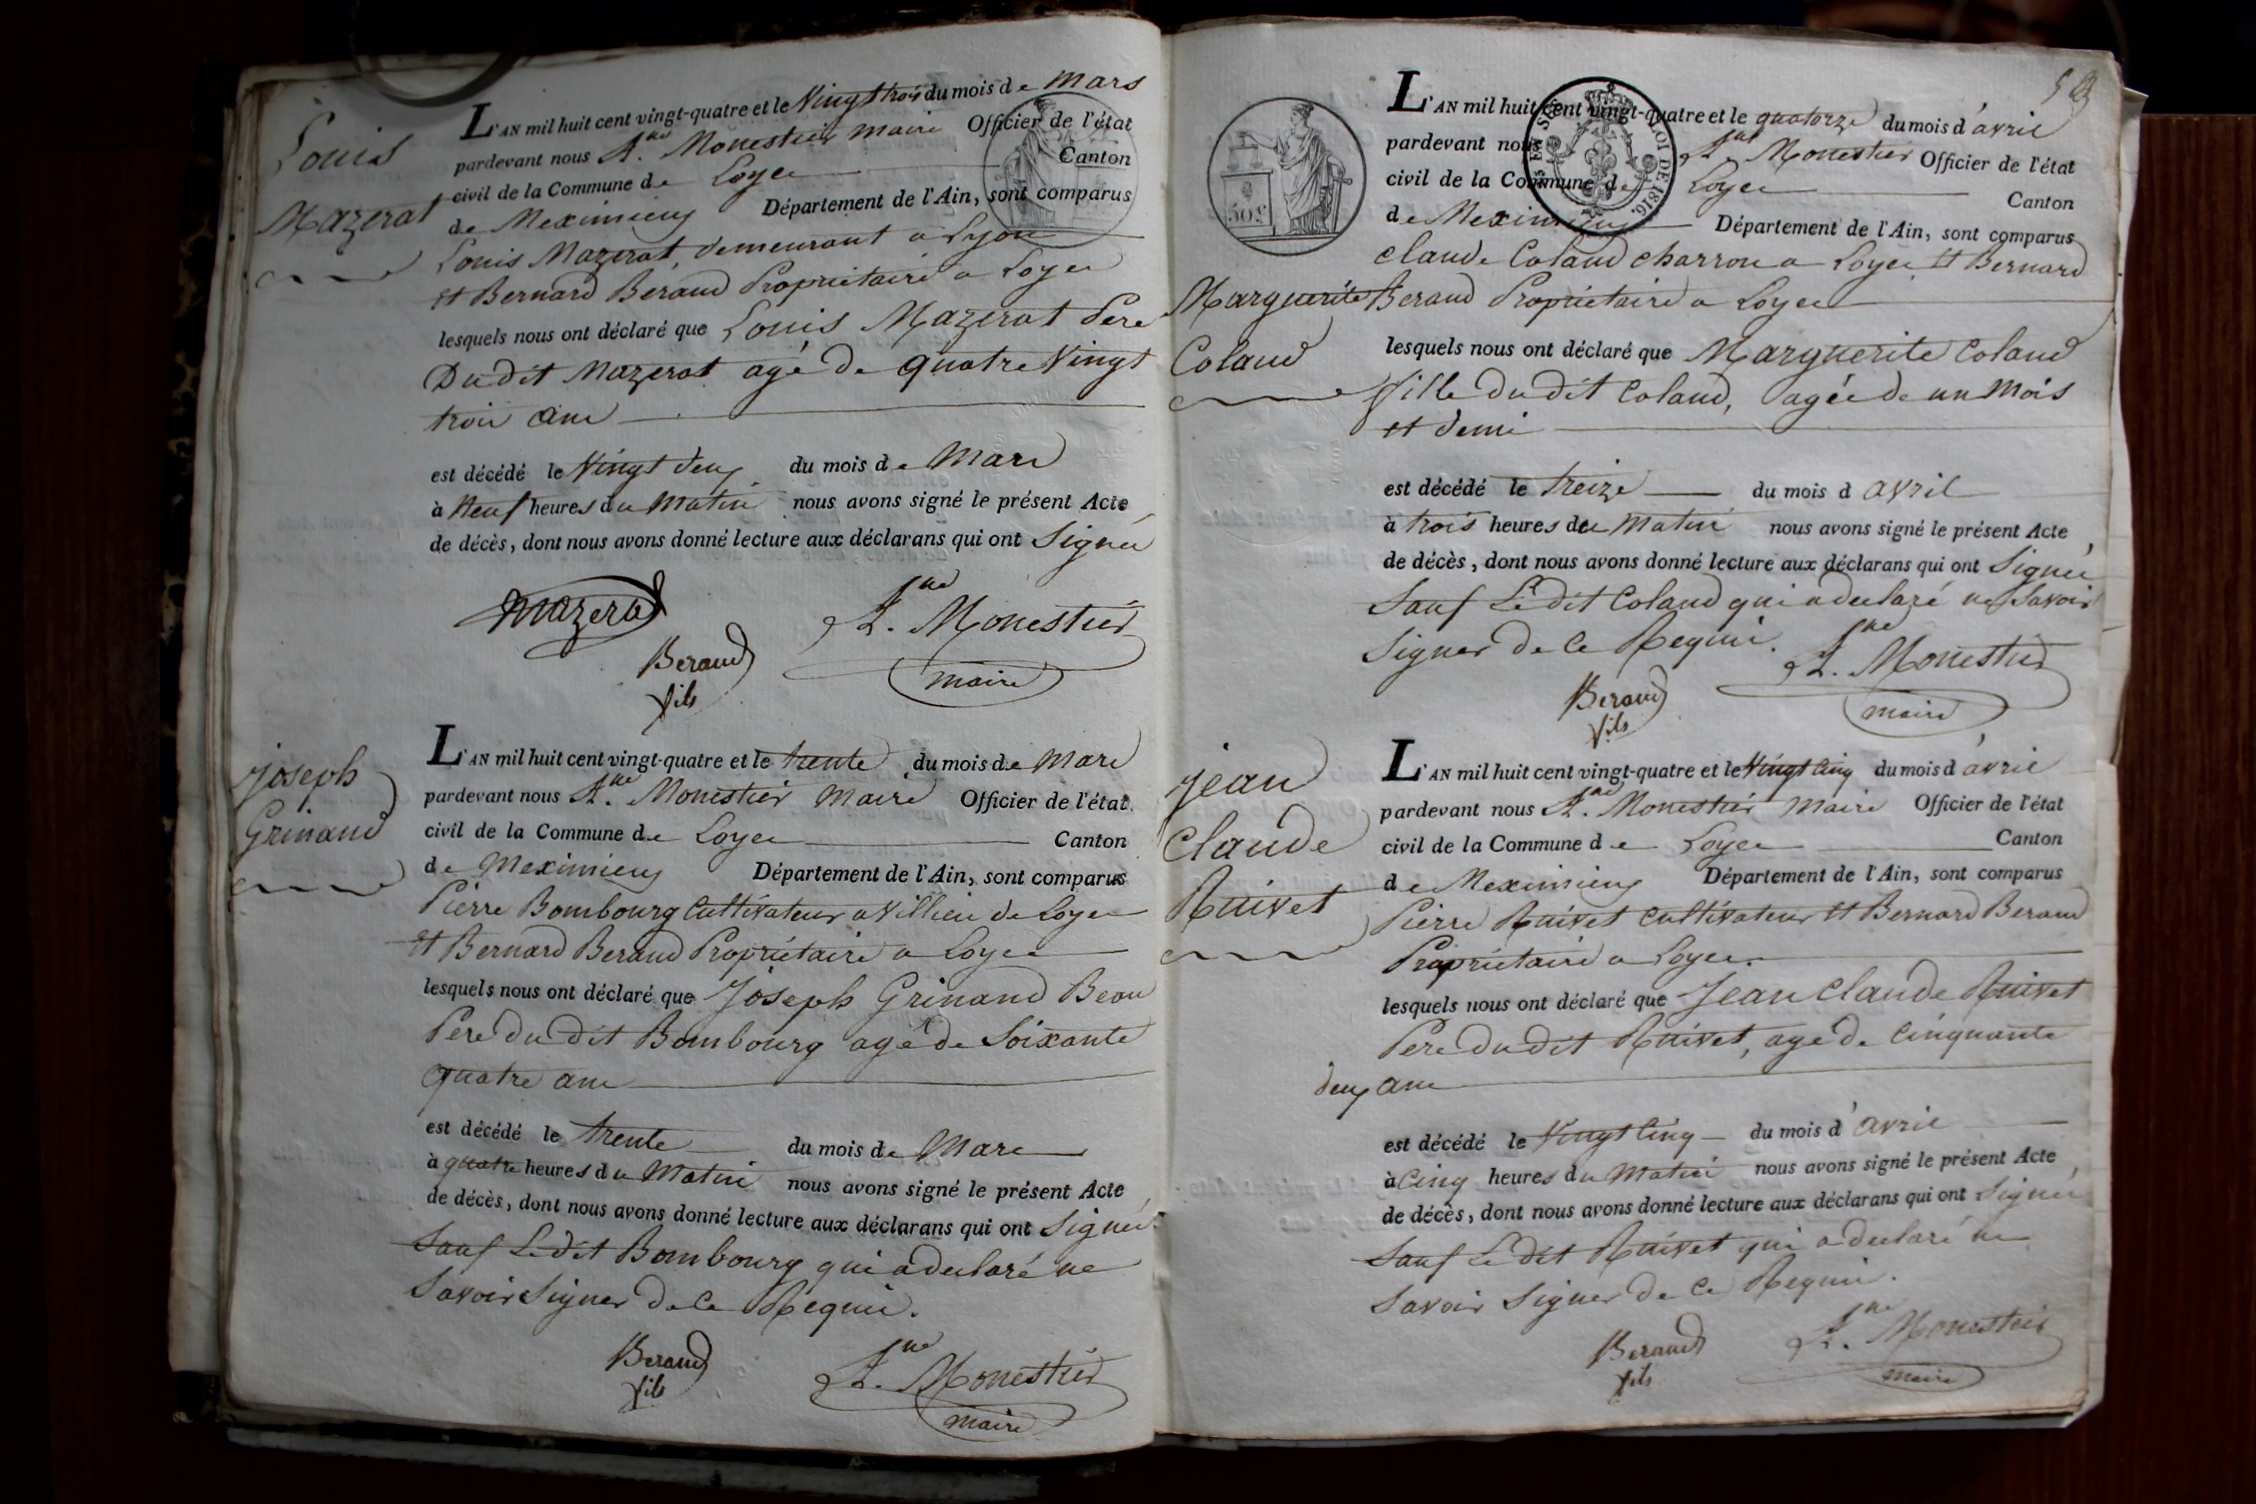 Louis
Mazerat
L'AN mil huit cent vingt-quatre et le Vingt trois du mois de Mars
pardevant nous A.ne Monestier maire Officier de l'état
civil de la Commune de Loyes Canton
de Meximieux Département de l'Ain, sont comparus
Louis Mazerat, demeurant a Lyon
et Bernard Beraud Propriétaire a Loyes
lesquels nous ont déclaré que Louis Mazerat Pere
Dudit Mazerat agé De quatre Vingt
trois ans
est décédé le Vingt deux du mois de Mars
à Neuf heures du Matin nous avons signé le présent Acte
de décès, dont nous avons donné lecture aux déclarans qui ont Signés
Mazerat
A.ne Monestier
maire
Beraud
fils
Joseph
Grinand
L'AN mil huit cent vingt-quatre et le trente du mois de Mars
pardevant nous A.ne Monestier Maire Officier de l'état
civil de la Commune de Loyes Canton
de Meximieux Département de l'Ain, sont comparus
Pierre Bombourg Cultivateur a Villieu de Loyes
et Bernard Beraud Propriétaire a Loyes
lesquels nous ont déclaré que Joseph Grinand Beau
Pere du dit Bombourg agé de Soixante
quatre ans
est décédé le trente du mois de Mars
à quatre heures du Matin nous avons signé le présent Acte
de décès, dont nous avons donné lecture aux déclarans qui ont Signés
Sauf Ledit Bombourg qui a declaré ne
Savoir Signer De ce Requis.
Beraud
fils
A.ne Monestier
maire
50c
LOI DE 1816.
L'AN mil huit cent vingt-quatre et le quatorze du mois d'avril
pardevant nous A.ne Monestier Officier de l'état
civil de la Commune de Loyes Canton
de Meximieux Département de l'Ain, sont comparus
Claude Coland charron a Loyes et Bernard
Marguerite
Coland
Beraud Propriétaire a Loyes
lesquels nous ont déclaré que Marguerite Coland
fille du dit Coland, agée de un Mois
et demi
est décédé le treize du mois d avril
à trois heures du Matin nous avons signé le présent Acte
de décès, dont nous avons donné lecture aux déclarans qui ont Signés
Sauf Ledit Coland qui a declaré ne Savoir
Signer De ce Requis.
A.ne Monestier
maire
Beraud
fils
Jean
Claude
Ruivet
L'AN mil huit cent vingt-quatre et le Vingt Cinq du mois d'avril
pardevant nous A.ne Monestier Maire Officier de l'état
civil de la Commune de Loyes Canton
de Meximieux Département de l'Ain, sont comparus
Pierre Ruivet cultivateur et Bernard Beraud
Propriétaire a Loyes
lesquels nous ont déclaré que Jean Claude Ruivet
Pere du dit Ruivet, agé de Cinquante
deux ans
est décédé le Vingt Cinq du mois d'avril
à Cinq heures du Matin nous avons signé le présent Acte
de décès, dont nous avons donné lecture aux déclarans qui ont Signés
Sauf Le dit Ruivet qui a declaré ne
Savoir Signer De ce Requis.
Beraud
fils
A.ne Monestier
maire